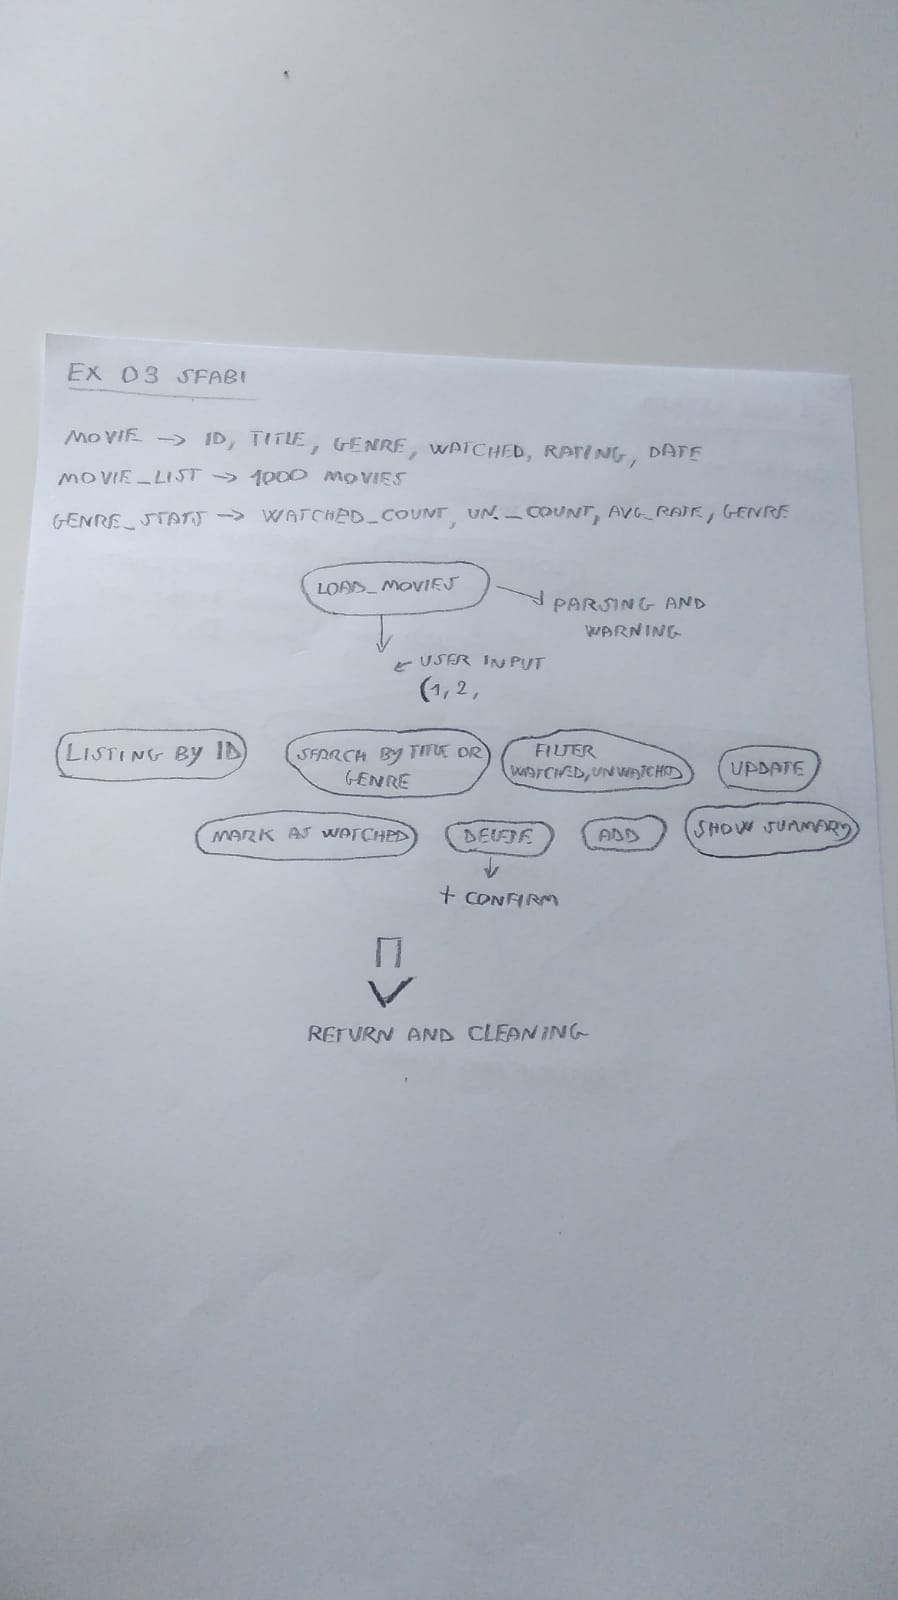 EX 03 SFABI
MOVIE → ID, TITLE, GENRE, WATCHED, RATING, DATE
MOVIE_LIST → 1000 MOVIES
GENRE_STATS → WATCHED_COUNT, UN._COUNT, AVG_RATE, GENRE
LOAD_MOVIES
PARSING AND
WARNING
← USER INPUT
(1, 2,
LISTING BY ID
SEARCH BY TITLE OR
GENRE
FILTER
WATCHED, UNWATCHED
UPDATE
MARK AS WATCHED
DELETE
ADD
SHOW SUMMARY
+ CONFIRM
RETURN AND CLEANING